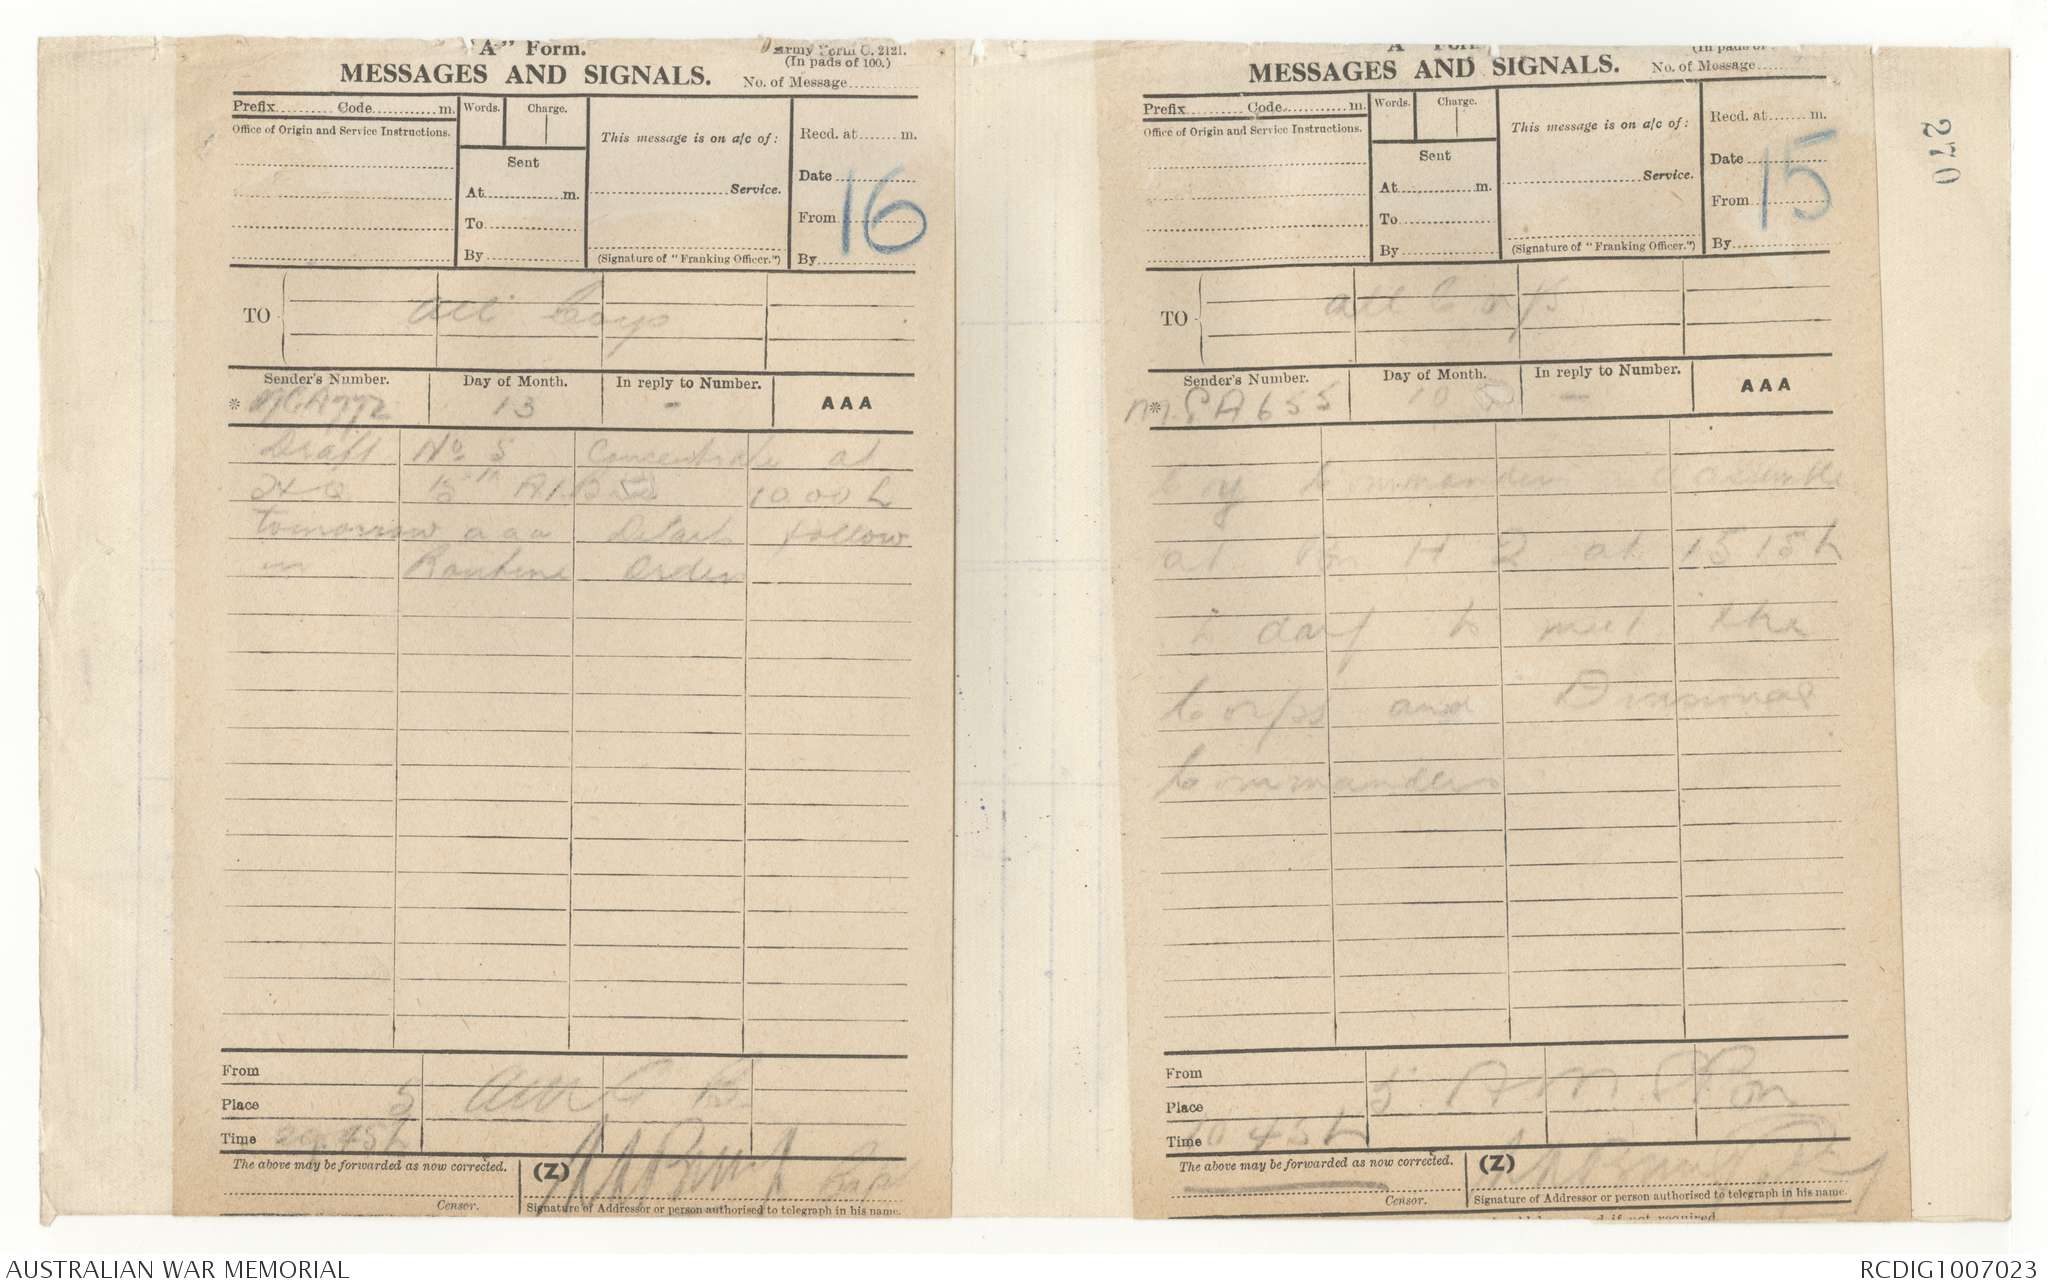 "A" Form.
Army Form C. 2121.
(In pads of 100.)
MESSAGES AND SIGNALS.
No. of Message
Prefix Code m.
Words.
Charge.
This message is on a/c of:
Recd. at m.
Office of Origin and Service Instructions.
Sent
Date
At m.
Service.
To
From 16
By
(Signature of "Franking Officer.")
By
TO
All Coys
Sender's Number.
Day of Month.
In reply to Number.
AAA
*
13
-
Draft No. 5 Concentrate at
tomorrow aaa Details follow
in Routine Orders
From
Place
Time
The above may be forwarded as now corrected.
(Z)
Censor.
Signature of Addressor or person authorised to telegraph in his name.
"A" Form
(In pads of
MESSAGES AND SIGNALS.
No. of Message
Prefix Code m.
Words.
Charge.
This message is on a/c of:
Recd. at m.
Office of Origin and Service Instructions.
Sent
Date 15
At m.
Service.
To
From
By
(Signature of "Franking Officer.")
By
270
TO
All Corps
Sender's Number.
Day of Month.
In reply to Number.
AAA
* A655
10
-
Coy Commanders assemble
at Bn HQ at 1515h
to day to meet the
Corps and Divisional
Commanders
From
Place
Time 10 45h
The above may be forwarded as now corrected.
(Z)
Censor.
Signature of Addressor or person authorised to telegraph in his name.
if not required
AUSTRALIAN WAR MEMORIAL
RCDIG1007023